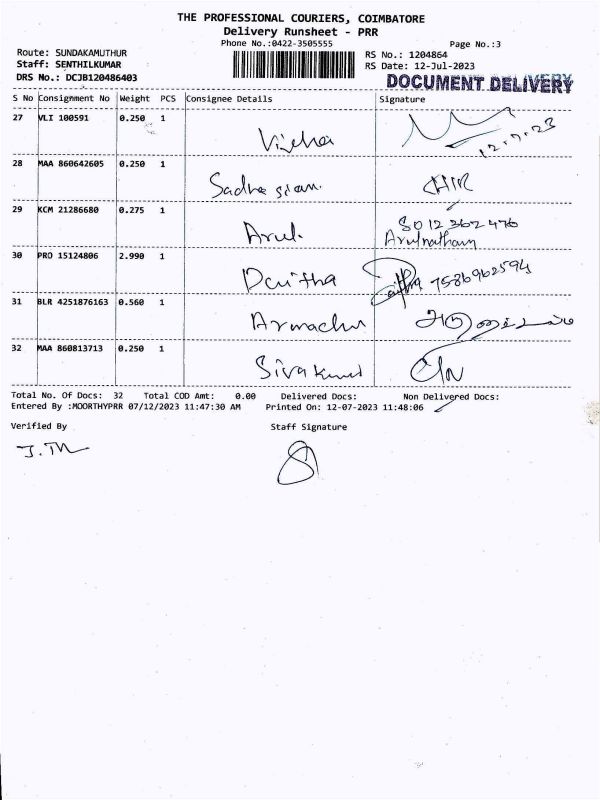 THE PROFESSIONAL COURIERS, COIMBATORE
Delivery Runsheet - PRR
Phone No.:0422-3505555
Page No.:3
Route: SUNDAKAMUTHUR
RS No.: 1204864
Staff: SENTHILKUMAR
RS Date: 12-Jul-2023
DRS No.: DCJB120486403
DOCUMENT DELIVERY
S No Consignment No Weight PCS Consignee Details Signature
27 VLI 100591 0.250 1
12.7.23
28 MAA 860642605 0.250 1
29 KCM 21286680 0.275 1 Arul.
8012362476
Arulnatham
30 PRO 15124806 2.990 1 7586962594
31 BLR 4251876163 0.560 1
32 MAA 860813713 0.250 1 Sivakumar
Total No. Of Docs: 32 Total COD Amt: 0.00 Delivered Docs: Non Delivered Docs:
Entered By :MOORTHYPRR 07/12/2023 11:47:30 AM Printed On: 12-07-2023 11:48:06
Verified By Staff Signature